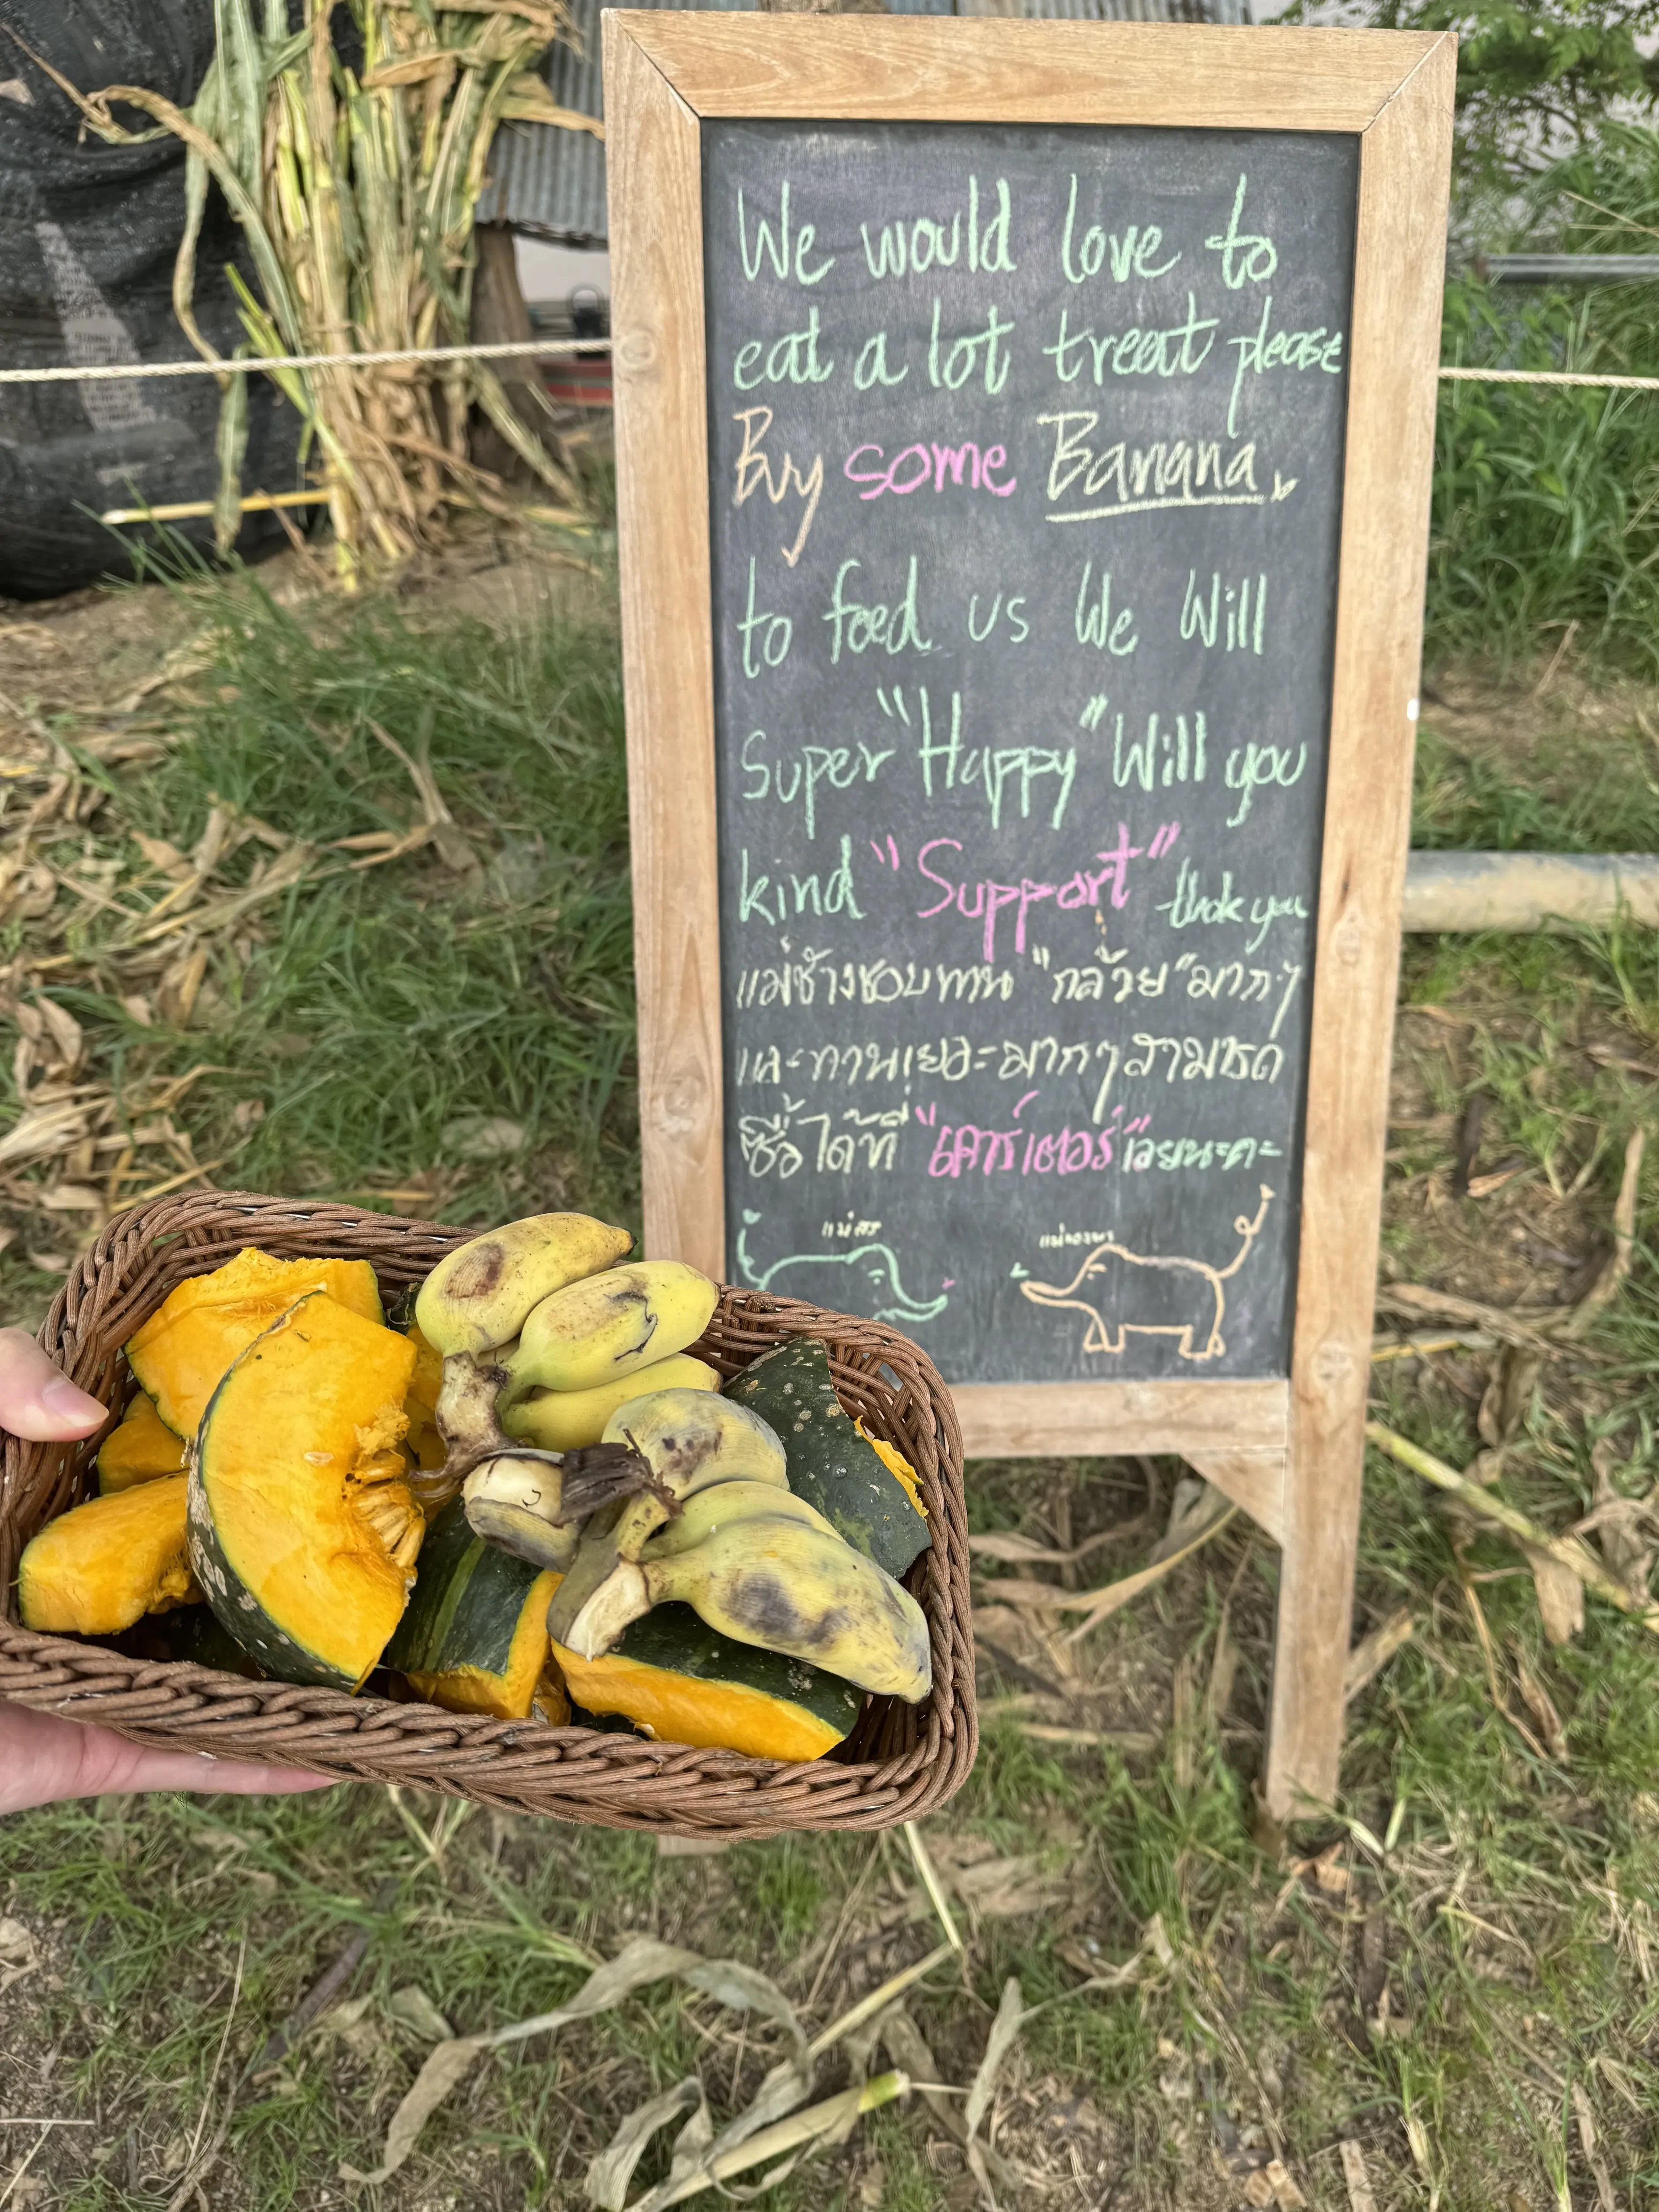 We would love to
eat a lot treat please
Buy some Banana
to feed us We Will
Super "Happy" Will you
kind "Support" thank you
แม่ช้างชอบทาน "กล้วย" มากๆ
และทานเยอะมากๆ สามารถ
ซื้อได้ที่ "เคาร์เตอร์" เลยนะคะ